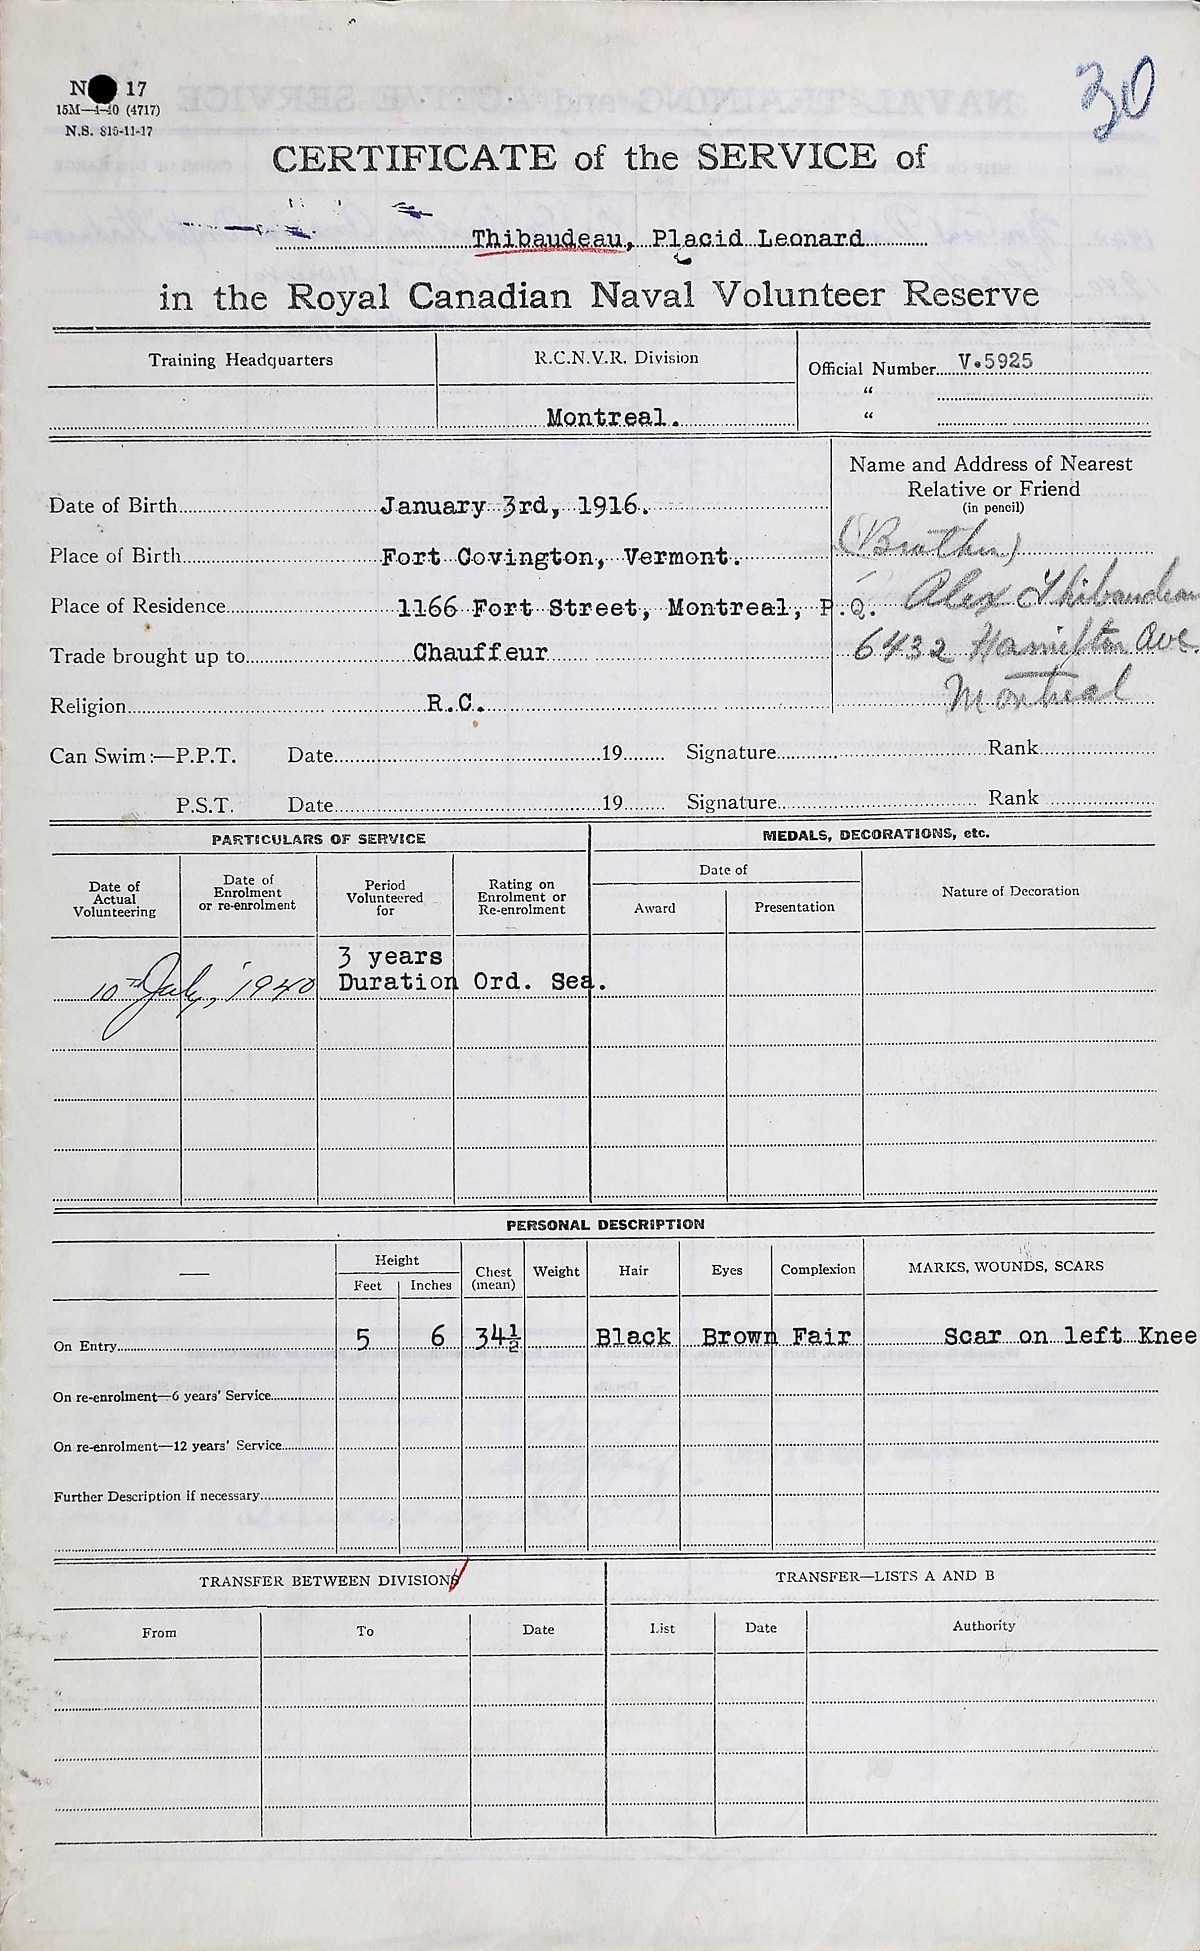 N 17
30
15M—4-40 (4717)
N.S. 815-11-17
CERTIFICATE of the SERVICE of
Thibaudeau, Placid Leonard
in the Royal Canadian Naval Volunteer Reserve
Training Headquarters
R.C.N.V.R. Division
Montreal.
Official Number V.5925
“
“
Name and Address of Nearest
Relative or Friend
(in pencil)
(Brother)
Alex Thibaudeau
6432 Hamilton Ave.
Montreal
Date of Birth January 3rd, 1916.
Place of Birth Fort Covington, Vermont.
Place of Residence 1166 Fort Street, Montreal, P.Q.
Trade brought up to Chauffeur
Religion R.C.
Can Swim:—P.P.T. Date 19 Signature Rank
P.S.T. Date 19 Signature Rank
PARTICULARS OF SERVICE
MEDALS, DECORATIONS, etc.
Date of
Actual
Volunteering
Date of
Enrolment
or re-enrolment
Period
Volunteered
for
Rating on
Enrolment or
Re-enrolment
Date of
Award
Presentation
Nature of Decoration
3 years
10th July, 1940 Duration Ord. Sea.
PERSONAL DESCRIPTION
—
Height
Feet Inches
Chest
(mean)
Weight
Hair
Eyes
Complexion
MARKS, WOUNDS, SCARS
On Entry 5 6 34½ Black Brown Fair Scar on left Knee
On re-enrolment—6 years' Service
On re-enrolment—12 years' Service
Further Description if necessary
TRANSFER BETWEEN DIVISIONS
TRANSFER—LISTS A AND B
From To Date List Date Authority